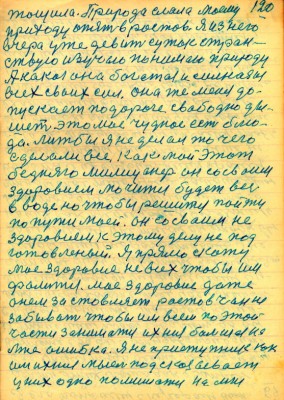 тощила. Природа слала моему 120
приходу опят в ростов. Я из него
вчера уже девит суток стран-
ствую изучаю понимаю природу
А какая она богатая и сильная
всех своих сил. она те меня до-
пускает по дороге свободно ды-
шет, это мае чудное ест
да. Я не делал то чего
сделали все, Как мой этот
бедняга милицанер он со своим
здоровием мочити будет вег
в воде но чтобы решити пойти
по пути моей. он со своим не
здоровием к этому делу не под
готовленый. Я прямо скажу
мае здоровие не всех чтобы им
фалити. мае здоровие даже
онем заставляет ростовчан не
забыват чтобы им всем по этой
части занимати ихния болшая
лже ошибка. Я не приступник как
им ихния мысел подсказавает
у них одно помишати на мни